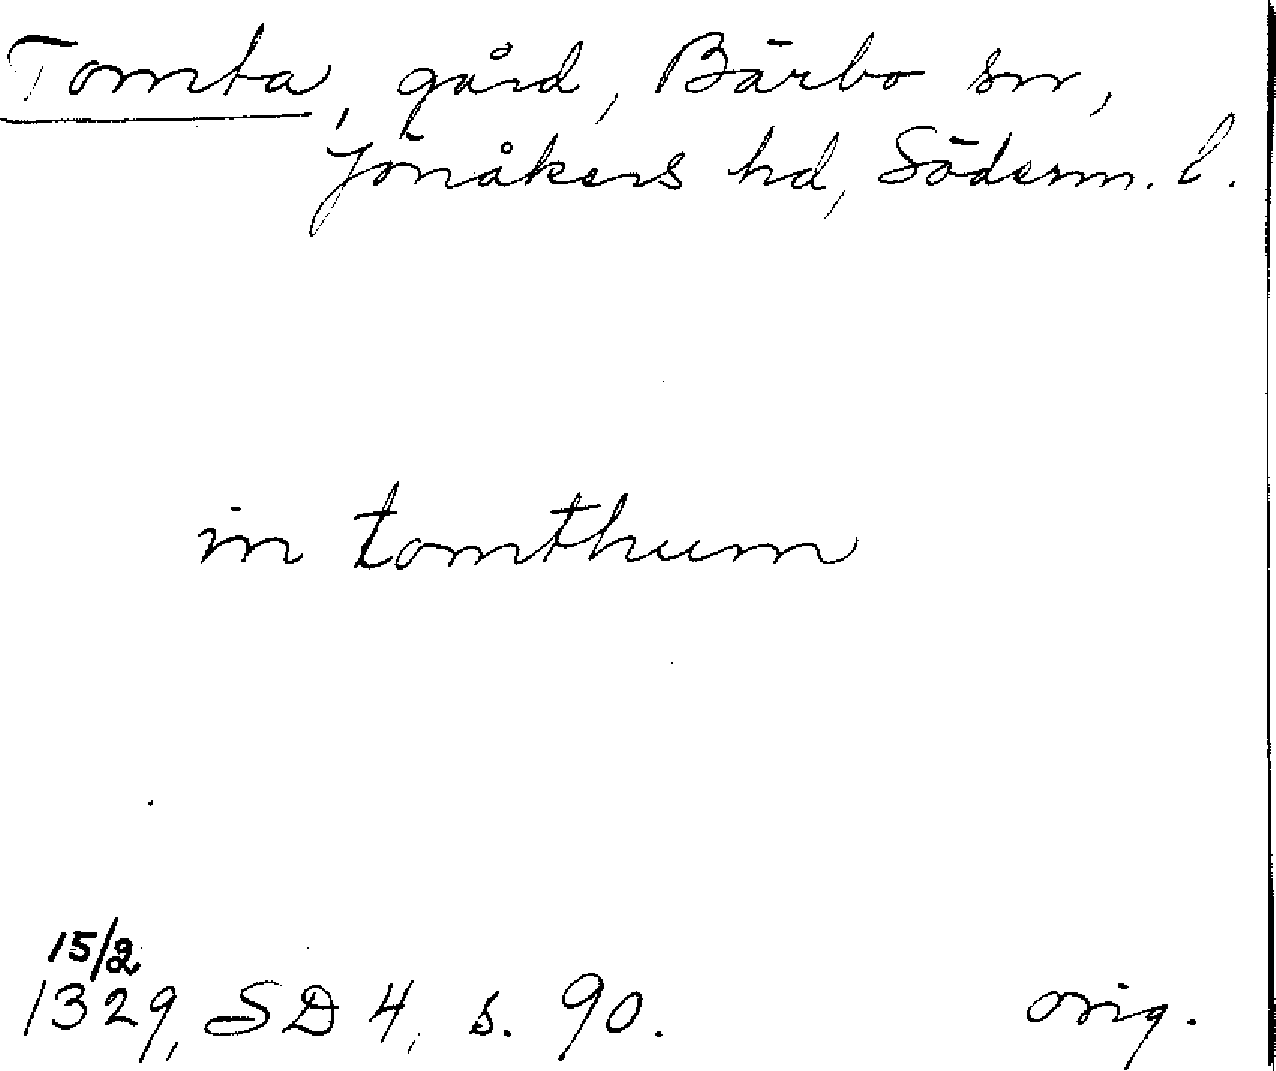 Tomta, gård, Bärbo sn,
Jönåkers hd, Söderm. l.
in tomthum
15/2
1329, SD 4, s. 90.
orig.